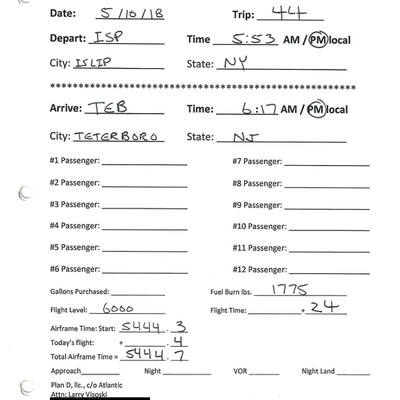 Date: 5/10/18 Trip: 44
Depart: ISP Time 5:53 AM / PM local
City: ISLIP State: NY
************************************************************
Arrive: TEB Time: 6:17 AM / PM local
City: TETERBORO State: NJ
#1 Passenger: #7 Passenger:
#2 Passenger: #8 Passenger:
#3 Passenger: #9 Passenger:
#4 Passenger: #10 Passenger:
#5 Passenger: #11 Passenger:
#6 Passenger: #12 Passenger:
Gallons Purchased: Fuel Burn lbs. 1775
Flight Level: 6000 Flight Time: + 24
Airframe Time: Start: 5444.3
Today's flight: + .4
Total Airframe Time = 5444.7
Approach Night VOR Night Land
Plan D, llc., c/o Atlantic
Attn: Larry Visoski